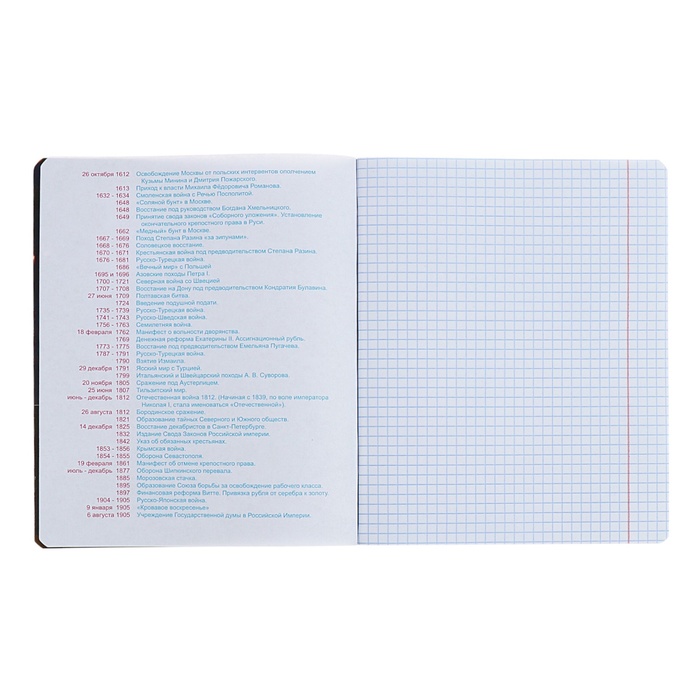 26 октября 1612 Освобождение Москвы от польских интервентов ополчением
Кузьмы Минина и Дмитрия Пожарского.
1613 Приход к власти Михаила Фёдоровича Романова.
1632 - 1634 Смоленская война с Речью Посполитой.
1648 «Соляной бунт» в Москве.
1648 Восстание под руководством Богдана Хмельницкого.
1649 Принятие свода законов «Соборного уложения». Установление
окончательного крепостного права в Руси.
1662 «Медный» бунт в Москве.
1667 - 1669 Поход Степана Разина «за зипунами».
1668 - 1676 Соловецкое восстание.
1670 - 1671 Крестьянская война под предводительством Степана Разина.
1676 - 1681 Русско-Турецкая война.
1686 «Вечный мир» с Польшей
1695 и 1696 Азовские походы Петра I.
1700 - 1721 Северная война со Швецией
1707 - 1708 Восстание на Дону под предводительством Кондратия Булавина.
27 июня 1709 Полтавская битва.
1724 Введение подушной подати.
1735 - 1739 Русско-Турецкая война.
1741 - 1743 Русско-Шведская война.
1756 - 1763 Семилетняя война.
18 февраля 1762 Манифест о вольности дворянства.
1769 Денежная реформа Екатерины II. Ассигнационный рубль.
1773 - 1775 Восстание под предводительством Емельяна Пугачева.
1787 - 1791 Русско-Турецкая война.
1790 Взятие Измаила.
29 декабря 1791 Ясский мир с Турцией.
1799 Итальянский и Швейцарский походы А. В. Суворова.
20 ноября 1805 Сражение под Аустерлицем.
25 июня 1807 Тильзитский мир.
июнь - декабрь 1812 Отечественная война 1812. (Начиная с 1839, по воле императора
Николая I, стала именоваться «Отечественной»).
26 августа 1812 Бородинское сражение.
1821 Образование тайных Северного и Южного обществ.
14 декабря 1825 Восстание декабристов в Санкт-Петербурге.
1832 Издание Свода Законов Российской империи.
1842 Указ об обязанных крестьянах.
1853 - 1856 Крымская война.
1854 - 1855 Оборона Севастополя.
19 февраля 1861 Манифест об отмене крепостного права.
июль - декабрь 1877 Оборона Шипкинского перевала.
1885 Морозовская стачка.
1895 Образование Союза борьбы за освобождение рабочего класса.
1897 Финансовая реформа Витте. Привязка рубля от серебра к золоту.
1904 - 1905 Русско-Японская война.
9 января 1905 «Кровавое воскресенье»
6 августа 1905 Учреждение Государственной думы в Российской Империи.